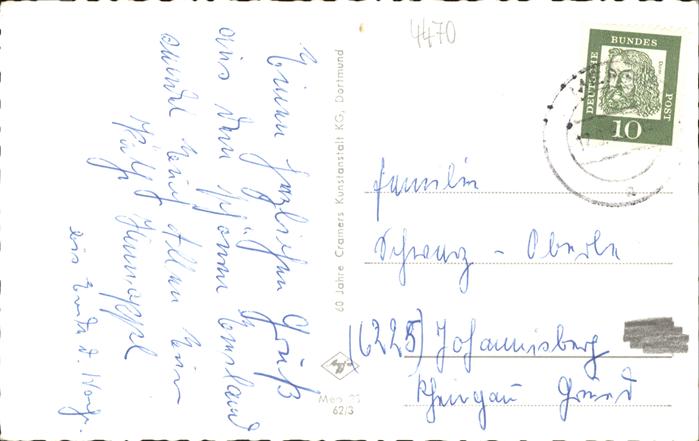 4470
Einen herzlichen Gruß
aus dem schönen Emsland
sendet Euch allen Euer
Rolf
DEUTSCHE
BUNDES
POST
10
60 Jahre Cramers Kunstanstalt KG, Dortmund
Mep
62/3
Familie
Schwarz - Oberle
(6225) Johannisberg
Rheingau